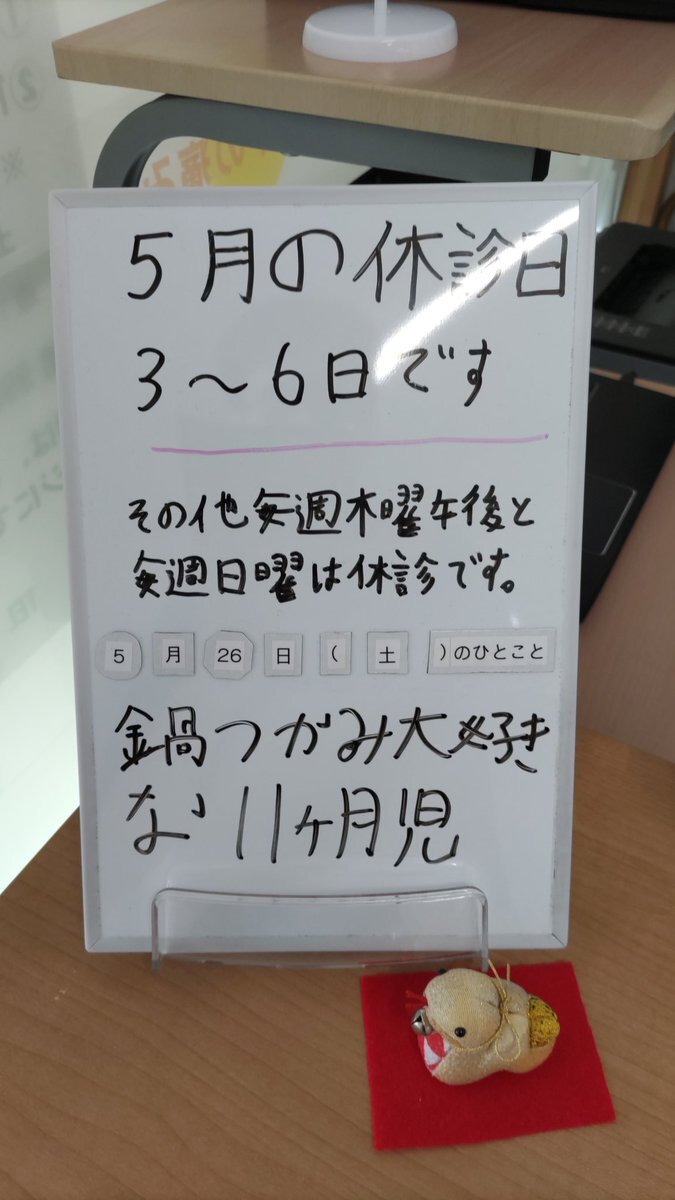 5月の休診日
3〜6日です
その他毎週木曜午後と
毎週日曜は休診です。
5月26日(土)のひとこと
鍋つがみ大好き
な11ヶ月児